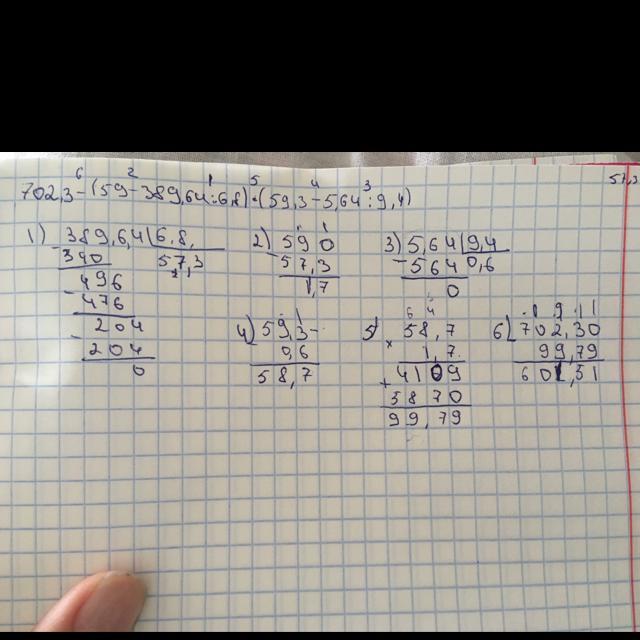 6 2 1 5 4 3
702,3-(59-389,64:6,8)·(59,3-5,64:9,4)
57,3
1) 389,6,4 6,8,
-340 57,3
496
-476
204
-204
0
2) 59 0
-57,3
1,7
3) 5,64 9,4
-564 0,6
0
4) 59,3-
0,6
58,7
6 4
5) 58,7
× 1,7
+4109
5870
99,79
6) 702,30
99,79
601,51